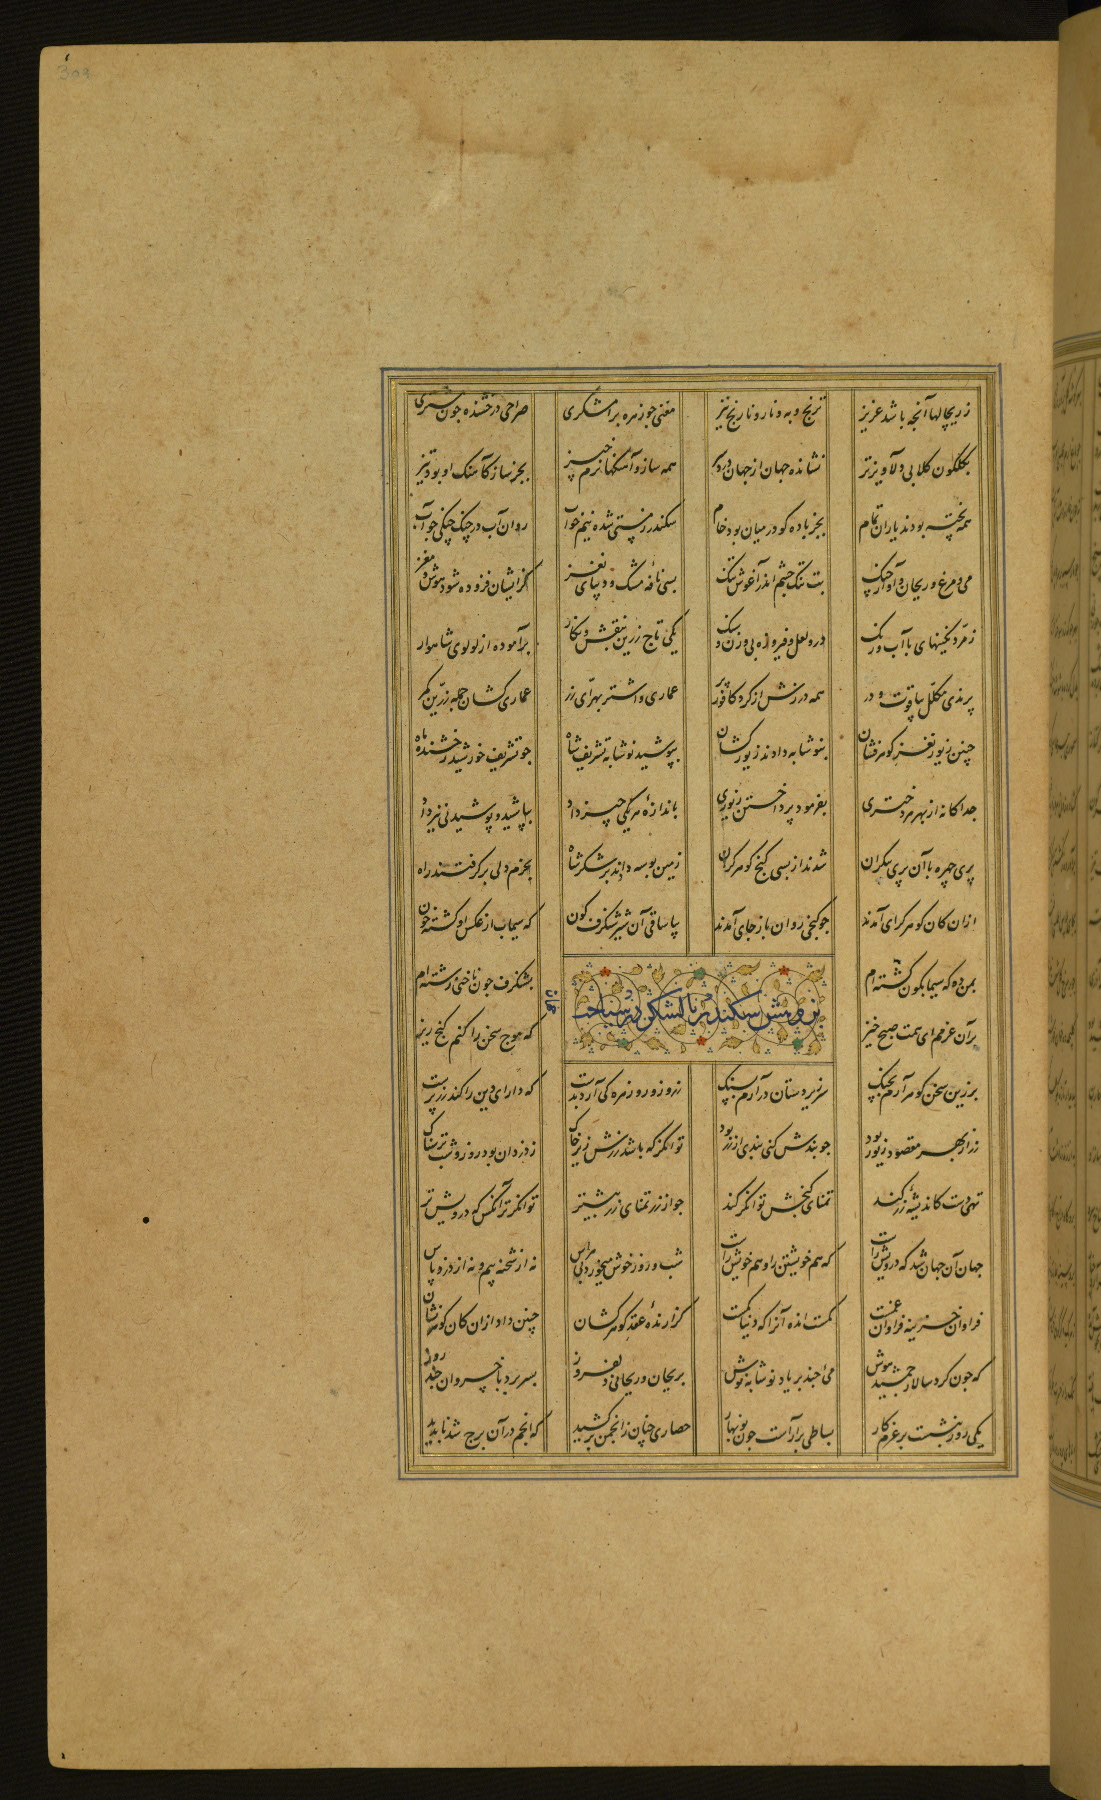 ز ریچالها آنچه باشد عزیز
ترنج و به و نار و نارنج نیز
مغنی جو زهره برامشکری
صراحی درخشنده جون مشتری
بکلکون کلابی دلاویزتر
نشانده جهان از جهان درد
همه ساز و آهنکها نرم خیز
بجز ساز کآهنک او بود تیز
همه پخته بودند یاران تمام
بجز باده کو در میان بود خام
سکندر ز مستی شده نیم خواب
روان آب در چنک چنکی جو آب
می و مرغ و ریحان و آواز چنک
بت تنک چشم اندر آغوش تنک
بسی نافه مشک و دیبای نغز
کزایشان فزوده شود هوش و مغز
زمرد نکینهای با آب و رنک
در و لعل و فیروزه بی وزن و سنک
یکی تاج زرین بنقش و نکار
برآموده از لولوی شاهوار
پرندی مکلل بیاقوت و در
همه درزش از کرد کافور پر
عماری و اشتر بهرای زر
عماری کشان جمله زرین کمر
چنین زیور نغز کوهرفشان
بنوشابه دادند زیورکشان
بپوشید نوشابه تشریف شاه
جو تشریف خورشید رخشنده ماه
جداکانه از بهر هر دختری
بفرمود پرداختن زیوری
باندازه هر یکی چیز داد
بپاشید و پوشیدنی نیز داد
پری چهره با آن پری پیکران
شدند از بسی کنج کوهر کران
زمین بوسه دادند بر شکر شاه
بخرم دلی برکرفتند راه
ازان کان کوهر کرای آمدند
جو کنجی روان باز جای آمدند
بیا ساقی آن شیر شنکرف کون
که سیماب از عکس او کشته خون
بمن ده که سیمابکون کشته ام
بشنکرف جون ناخنی رشته ام
سکندر با لشکر در سیاحت جهان
بر آن عزمم ای همت صبح خیز
که موج سخن را کنم کنج ریز
برزین سخن کوهر آرم بچنک
سر زیردستان در آرم بسنک
زر و زور و زهره کی آرد بدست
که دارای دین را کند زرپرست
زر از بهر مقصود زیور بود
جو بندش کنی بندی از زر بود
توانکر که باشد زرش زیر خاک
ز دزدان بود روز و شب ترسناک
تهی دست کاندیشه زر کند
تمنای کنجش توانکر کند
جو از زر تمنای زر بیشتر
توانکرتر آنکس که درویش تر
جهان آن جهان شد که درویش راست
که هم خویشتن را و هم خویش راست
شب و روز خوش میخورد بی هراس
نه از شحنه بیم و نه از دزد پاس
فراوان خزینه فراوان غمست
کمست انده آنرا که دنیا کمست
کزارنده عقد کوهرکشان
چنین داد ازان کان کوهر نشان
که جون کرد سالار جمشید هوش
می چند بر یاد نوشابه نوش
بریحان و ریحانی دلفروز
بسر برد با خسروان چند روز
یکی روز بنشست بر عزم کار
بساطی برآراست جون نوبهار
حصاری چنان زانجمن برکشید
که انجم در آن برج شد ناپدید